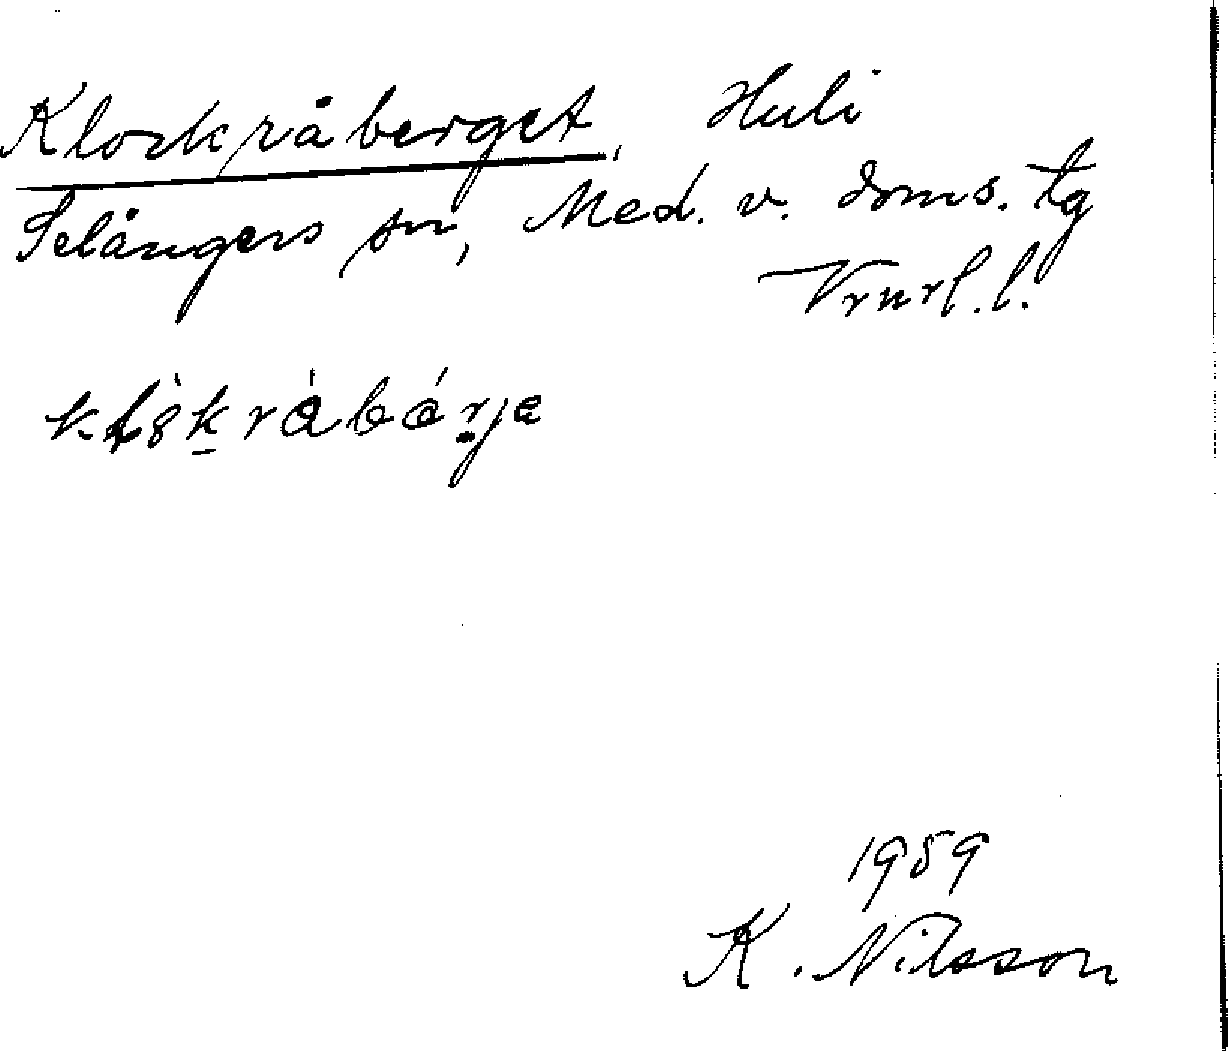 Klockråberget, Huli
Selångers sn, Med. v. doms. tg
Vrnrl. l.
1959
K. Nilsson